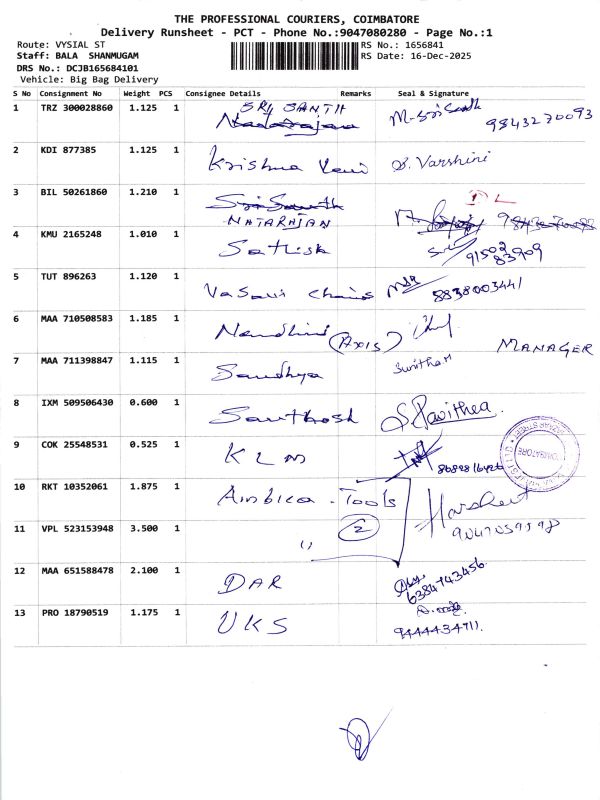 THE PROFESSIONAL COURIERS, COIMBATORE
Delivery Runsheet - PCT - Phone No.:9047080280 - Page No.:1
Route: VYSIAL ST
RS No.: 1656841
Staff: BALA SHANMUGAM
RS Date: 16-Dec-2025
DRS No.: DCJB165684101
Vehicle: Big Bag Delivery
S No Consignment No Weight PCS Consignee Details Remarks Seal & Signature
1 TRZ 300028860 1.125 1 SRI SANTH
Natarajan 9843270093
2 KDI 877385 1.125 1 Krishna Veni S. Varshini
3 BIL 50261860 1.210 1 Sri Santh
NATARAJAN
4 KMU 2165248 1.010 1 Sathish 91502 83909
5 TUT 896263 1.120 1 Vasavi Chains 8838003441
6 MAA 710508583 1.185 1 Nandhini (Axis)
MANAGER
7 MAA 711398847 1.115 1 Sandhya Sunitha M
8 IXM 509506430 0.600 1 Santhosh S. Pavithra
9 COK 25548531 0.525 1 KLM
10 RKT 10352061 1.875 1 Ambica Tools Harsheet
11 VPL 523153948 3.500 1 〃 2
12 MAA 651588478 2.100 1 DAR 6384743456
13 PRO 18790519 1.175 1 UKS 9444434711